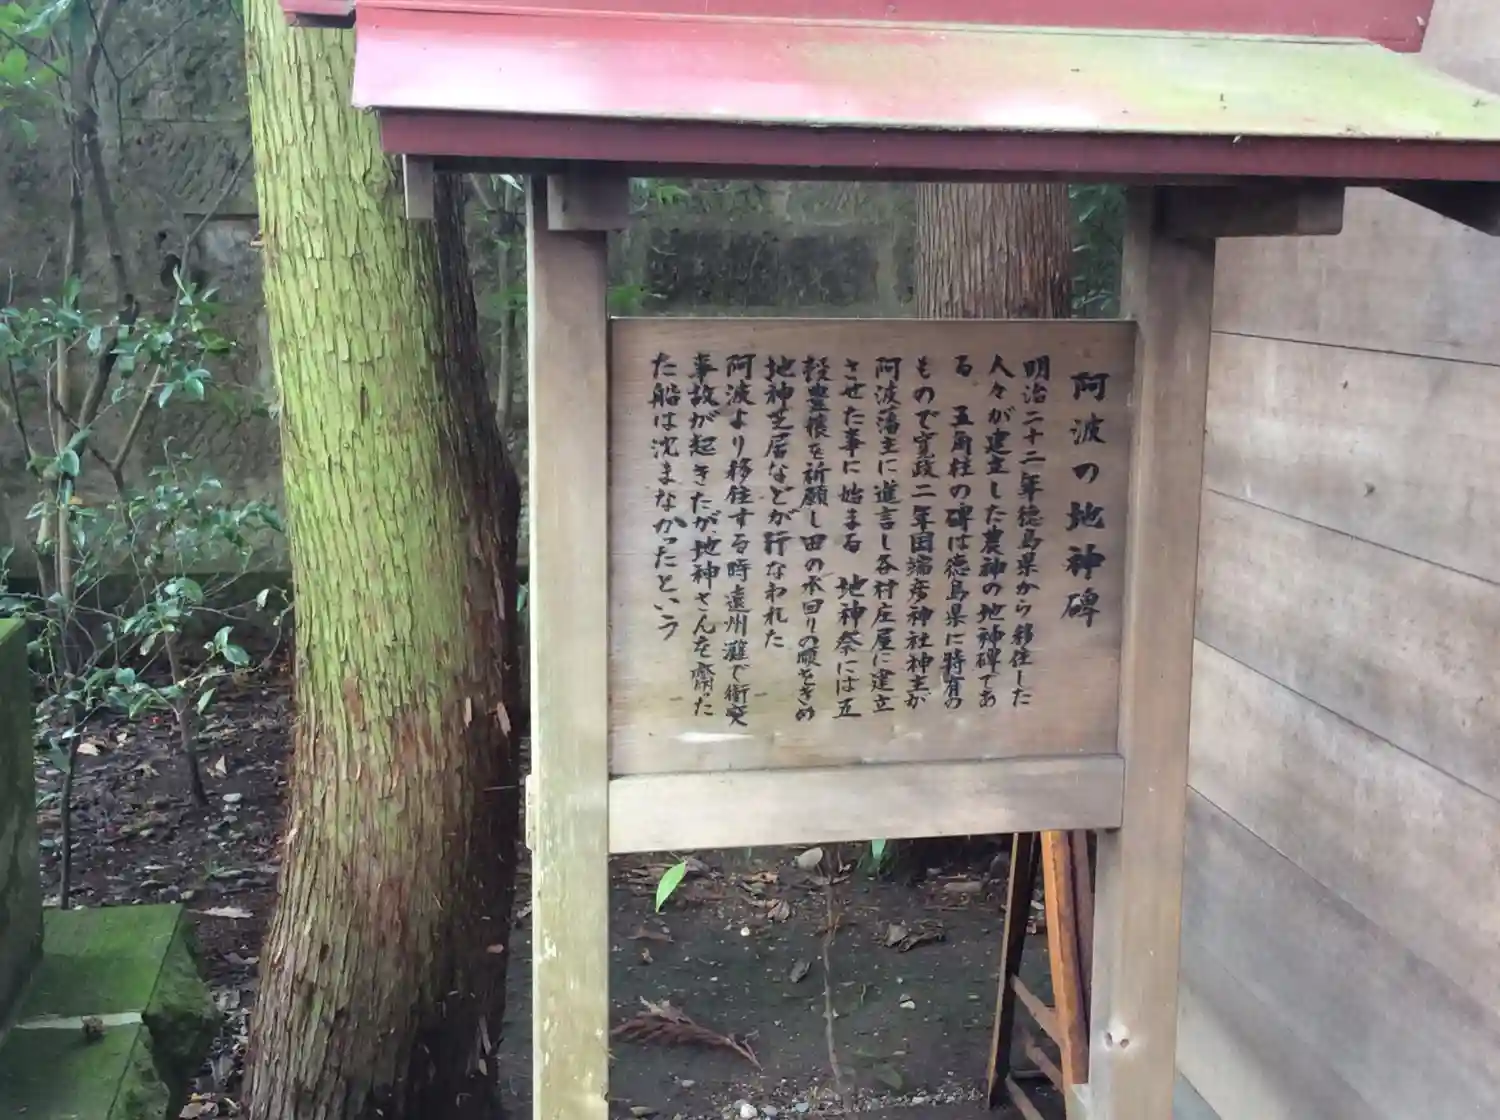 阿波の地神碑
明治二十二年徳島県から移住した
人々が建立した農神の地神碑であ
る 五角柱の碑は徳島県に特有の
もので寛政二年国端彦神社神主が
阿波藩主に進言し各村庄屋に建立
させた事に始まる 地神祭には五
穀豊穣を祈願し田の水回りの順をきめ
地神芝居などが行なわれた
阿波より移住する時遠州灘で衝突
事故が起きたが、地神さんを齋った
た船は沈まなかったという